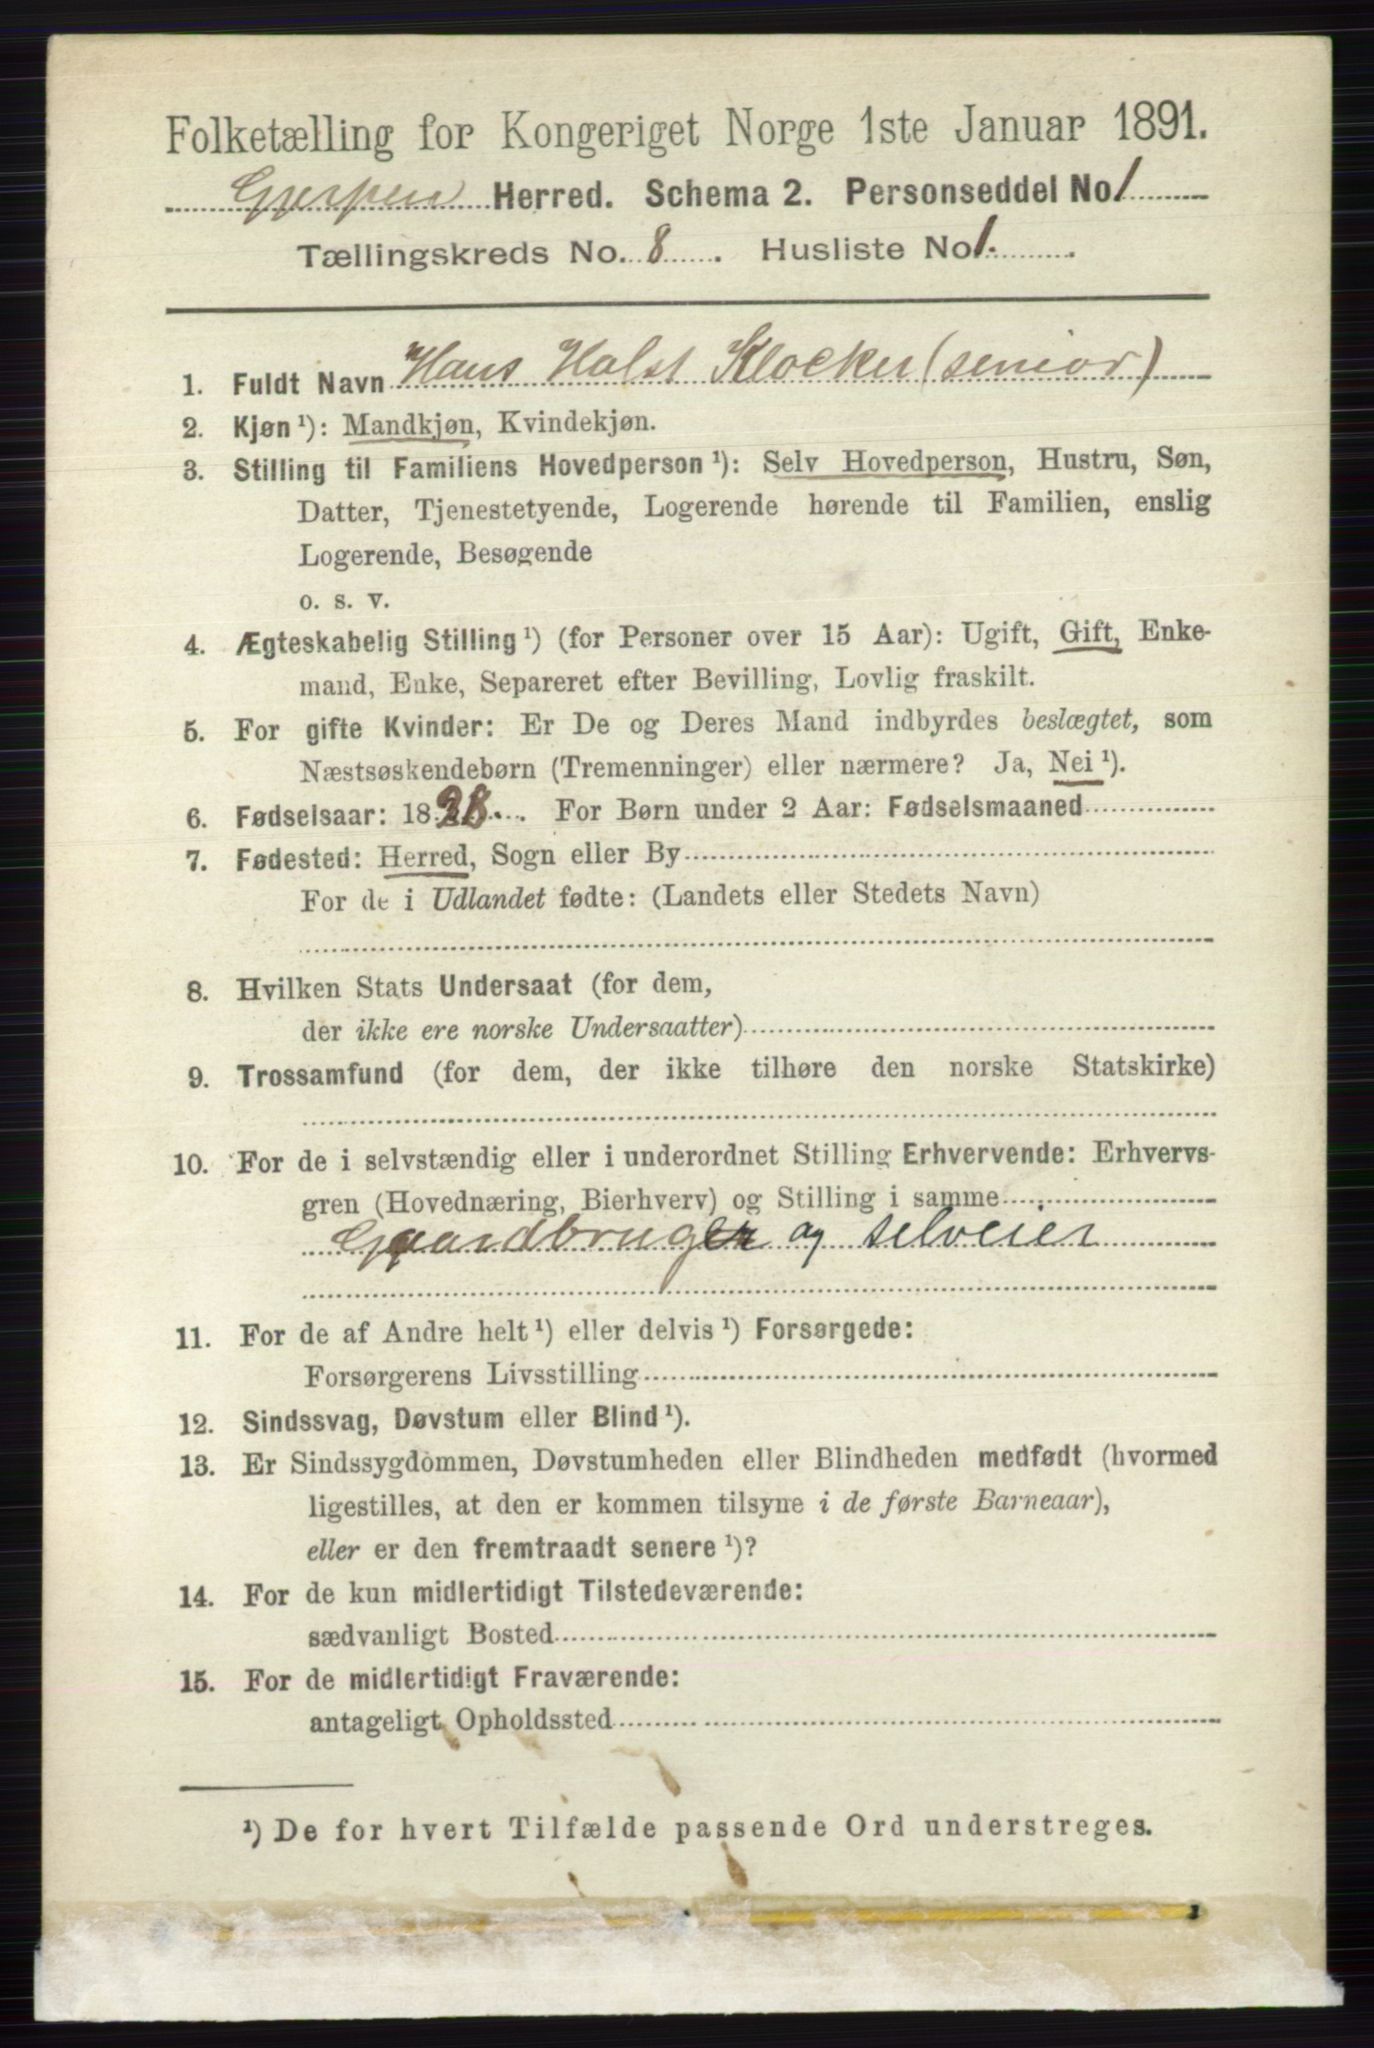 Folketælling for Kongeriget Norge 1ste Januar 1891.
Gjerpen Herred. Schema 2. Personseddel No 1
Tællingskreds No. 8. Husliste No 1.
1. Fuldt Navn Hans Holst Klocker (senior)
2. Kjøn ¹): Mandkjøn, Kvindekjøn.
3. Stilling til Familiens Hovedperson ¹): Selv Hovedperson, Hustru, Søn,
Datter, Tjenestetyende, Logerende hørende til Familien, enslig
Logerende, Besøgende
o. s. v.
4. Ægteskabelig Stilling ¹) (for Personer over 15 Aar): Ugift, Gift, Enke-
mand, Enke, Separeret efter Bevilling, Lovlig fraskilt.
5. For gifte Kvinder: Er De og Deres Mand indbyrdes beslægtet, som
Næstsøskendebørn (Tremenninger) eller nærmere? Ja, Nei ¹).
6. Fødselsaar: 1828. For Børn under 2 Aar: Fødselsmaaned
7. Fødested: Herred, Sogn eller By
For de i Udlandet fødte: (Landets eller Stedets Navn)
8. Hvilken Stats Undersaat (for dem,
der ikke ere norske Undersaatter)
9. Trossamfund (for dem, der ikke tilhøre den norske Statskirke)
10. For de i selvstændig eller i underordnet Stilling Erhvervende: Erhvervs-
gren (Hovednæring, Bierhverv) og Stilling i samme
Gaardbruger og selveier
11. For de af Andre helt ¹) eller delvis ¹) Forsørgede:
Forsørgerens Livsstilling
12. Sindssvag, Døvstum eller Blind ¹).
13. Er Sindssygdommen, Døvstumheden eller Blindheden medfødt (hvormed
ligestilles, at den er kommen tilsyne i de første Barneaar),
eller er den fremtraadt senere ¹)?
14. For de kun midlertidigt Tilstedeværende:
sædvanligt Bosted
15. For de midlertidigt Fraværende:
antageligt Opholdssted
¹) De for hvert Tilfælde passende Ord understreges.